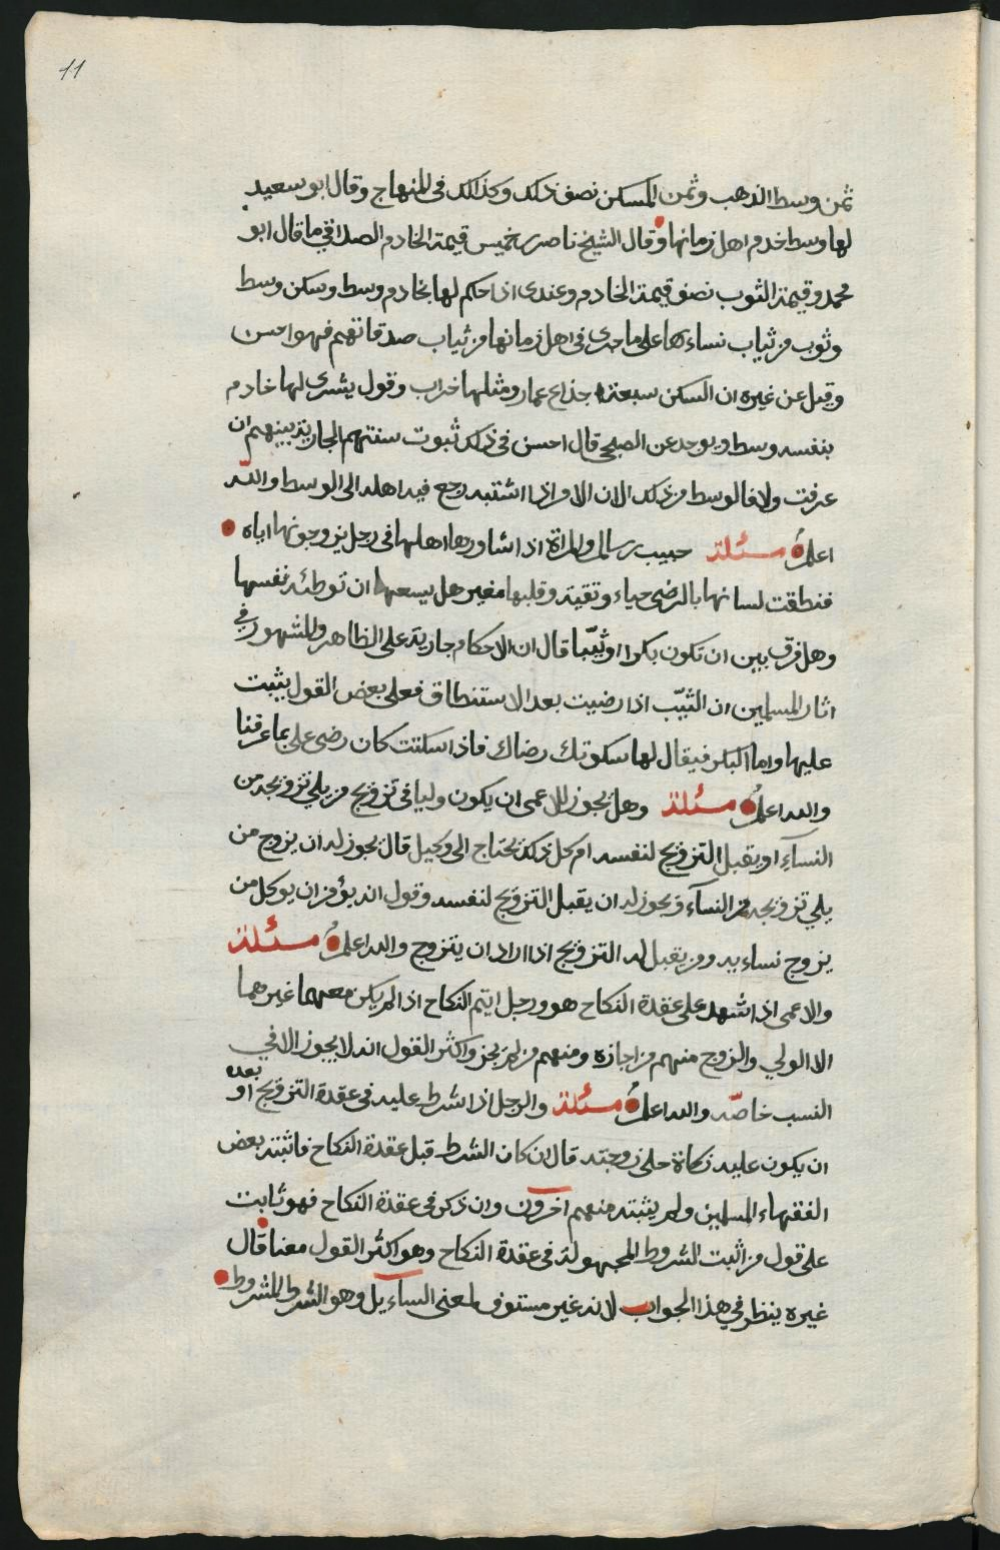 11
ثمن وسط الذهب وثمن المسكن نصف ذلك وكذلك في المنهاج وقال ابو سعيد
لها وسط خدم اهل زمانها وقال الشيخ ناصر بن خميس قيمة الخادم الصداقي ما قال ابو
محمد وقيمة الثوب نصف قيمة الخادم وعندي اذا حكم لها بخادم وسط وسكن وسط
وثوب من ثياب نساءها على ما جرى في اهل زمانها من ثياب صدقاتهم فهو احسن
وقيل عن غيره ان السكن سبعة اجذاع عمار ومثلها خراب وقول يشترى لها خادم
بنفسه وسط ويوجد عن الصبحي قال احسن في ذلك ثبوت سنتهم الجارية بينهم ان
عرفت ولا فالوسط من ذلك الان الامر اذا اشتبه رجع فيه اهله الى الوسط والله
اعلم مسئلة حبيب بن سالم والمراة اذا شاورها اهلها في رجل يزوجونها اياه
فنطقت لسانها بالرضى حياء وتقية وقلبها مغير هل يسعها ان توطئه نفسها
وهل فرق بين ان تكون بكرا او ثيّبا قال ان الاحكام جارية على الظاهر والمشهور في
اثار المسلمين ان الثيّب اذا رضيت بعد الاستنطاق فعلى بعض القول يثبت
عليها واما البكر فيقال لها سكوتك رضاك فاذا سكتت كان رضى على ما عرفنا
والله اعلم مسئلة وهل يجوز للاعمى ان يكون وليا في تزويج من يلي تزويجه من
النساء او يقبل التزويج لنفسه ام كل ذلك يحتاج الى وكيل قال يجوز له ان يزوج من
يلي تزويجه من النسآء ويجوز له ان يقبل التزويج لنفسه وقول انه يؤمر ان يوكل من
يزوج نساءيه ومن يقبل له التزويج اذا اراد ان يتزوج والله اعلم مسئلة
والاعمى اذا شهد على عقدة النكاح هو ورجل ايتم النكاح اذا لم يكن معهما غيرهما
الا الولي والزوج منهم من اجازه ومنهم من لم يجز واكثر القول انه لا يجوز الا في
النسب خاصّه والله اعلم مسئلة والرجل اذا شرط عليه في عقدة التزويج او بعده
ان يكون عليه زكاة حلي زوجته قال ان كان الشرط قبل عقدة النكاح فاثبته بعض
الفقهاء المسلمين ولم يثبته منهم آخرون وان ذكر في عقدة النكاح فهو ثابت
على قول من اثبت الشروط المجهولة في عقدة النكاح وهو اكثر القول معنا قال
غيره ينظر في هذا الجواب لانه غير مستوف لمعنى السآءيل وهو الشرط المشروط